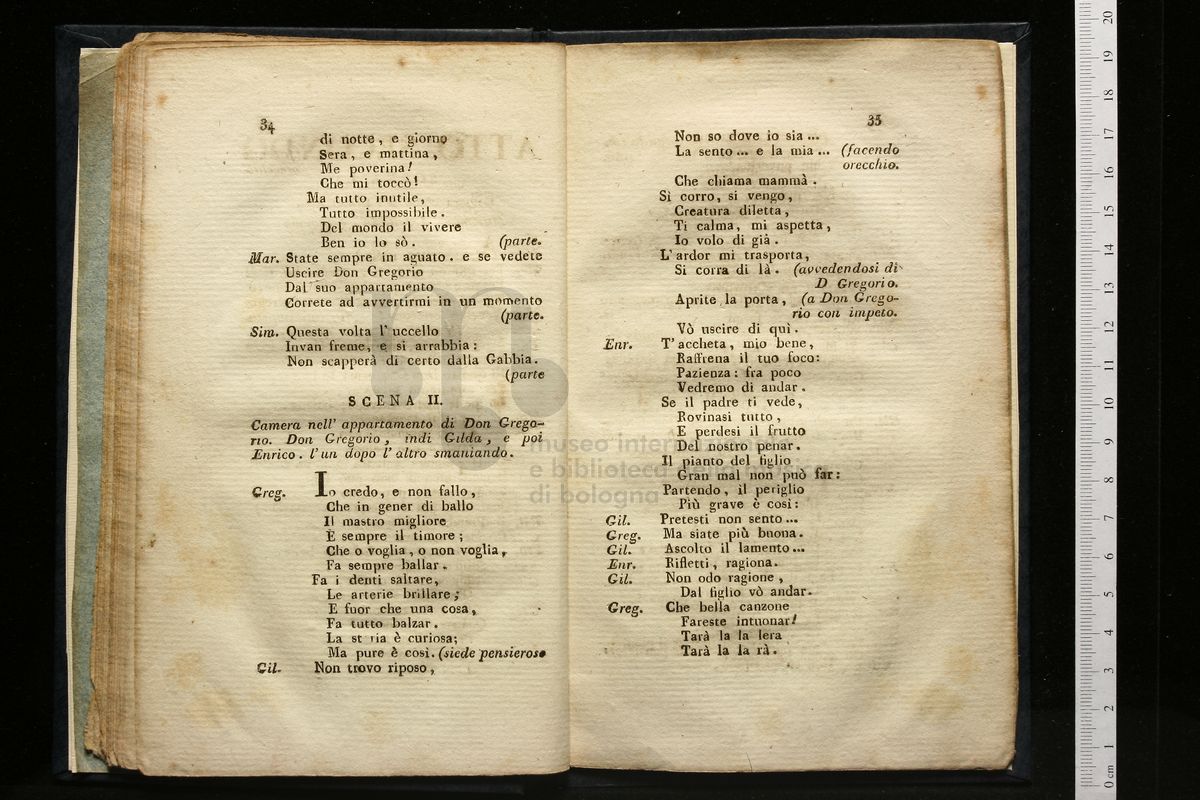 34
di notte, e giorno
Sera, e mattina,
Me poverina!
Che mi toccò!
Ma tutto inutile,
Tutto impossibile.
Del mondo il vivere
Ben io lo sò. (parte.
Mar. State sempre in aguato. e se vedete
Uscire Don Gregorio
Dal suo appartamento
Correte ad avvertirmi in un momento
(parte.
Sim. Questa volta l'uccello
Invan freme, e si arrabbia:
Non scapperà di certo dalla Gabbia.
(parte
SCENA II.
Camera nell' appartamento di Don Grego-
rio. Don Gregorio, indi Gilda, e poi
Enrico. l'un dopo l'altro smaniando.
Greg. Io credo, e non fallo,
Che in gener di ballo
Il mastro migliore
E sempre il timore;
Che o voglia, o non voglia,
Fa sempre ballar.
Fa i denti saltare,
Le arterie brillare;
E fuor che una cosa,
Fa tutto balzar.
La st ria è curiosa;
Ma pure è così. (siede pensieroso
Gil. Non trovo riposo,
35
Non so dove io sia ...
La sento ... e la mia ... (facendo
orecchio.
Che chiama mammà.
Sì corro, si vengo,
Creatura diletta,
Ti calma, mi aspetta,
Io volo di già.
L'ardor mi trasporta,
Si corra di là. (avvedendosi di
D Gregorio.
Aprite la porta, (a Don Grego-
rio con impeto.
Vò uscire di quì.
Enr. T'accheta, mio bene,
Raffrena il tuo foco:
Pazienza: fra poco
Vedremo di andar.
Se il padre ti vede,
Rovinasi tutto,
E perdesi il frutto
Del nostro penar.
Il pianto del figlio
Gran mal non può far:
Partendo, il periglio
Più grave è così:
Gil. Pretesti non sento ...
Greg. Ma siate più buona.
Gil. Ascolto il lamento ...
Enr. Rifletti, ragiona.
Gil. Non odo ragione,
Dal figlio vò andar.
Greg. Che bella canzone
Fareste intuonar!
Tarà la la lera
Tarà la la rà.
museo internazionale
e biblioteca della musica
di bologna
20
19
18
17
16
15
14
13
12
11
10
9
8
7
6
5
4
3
2
1
0 cm